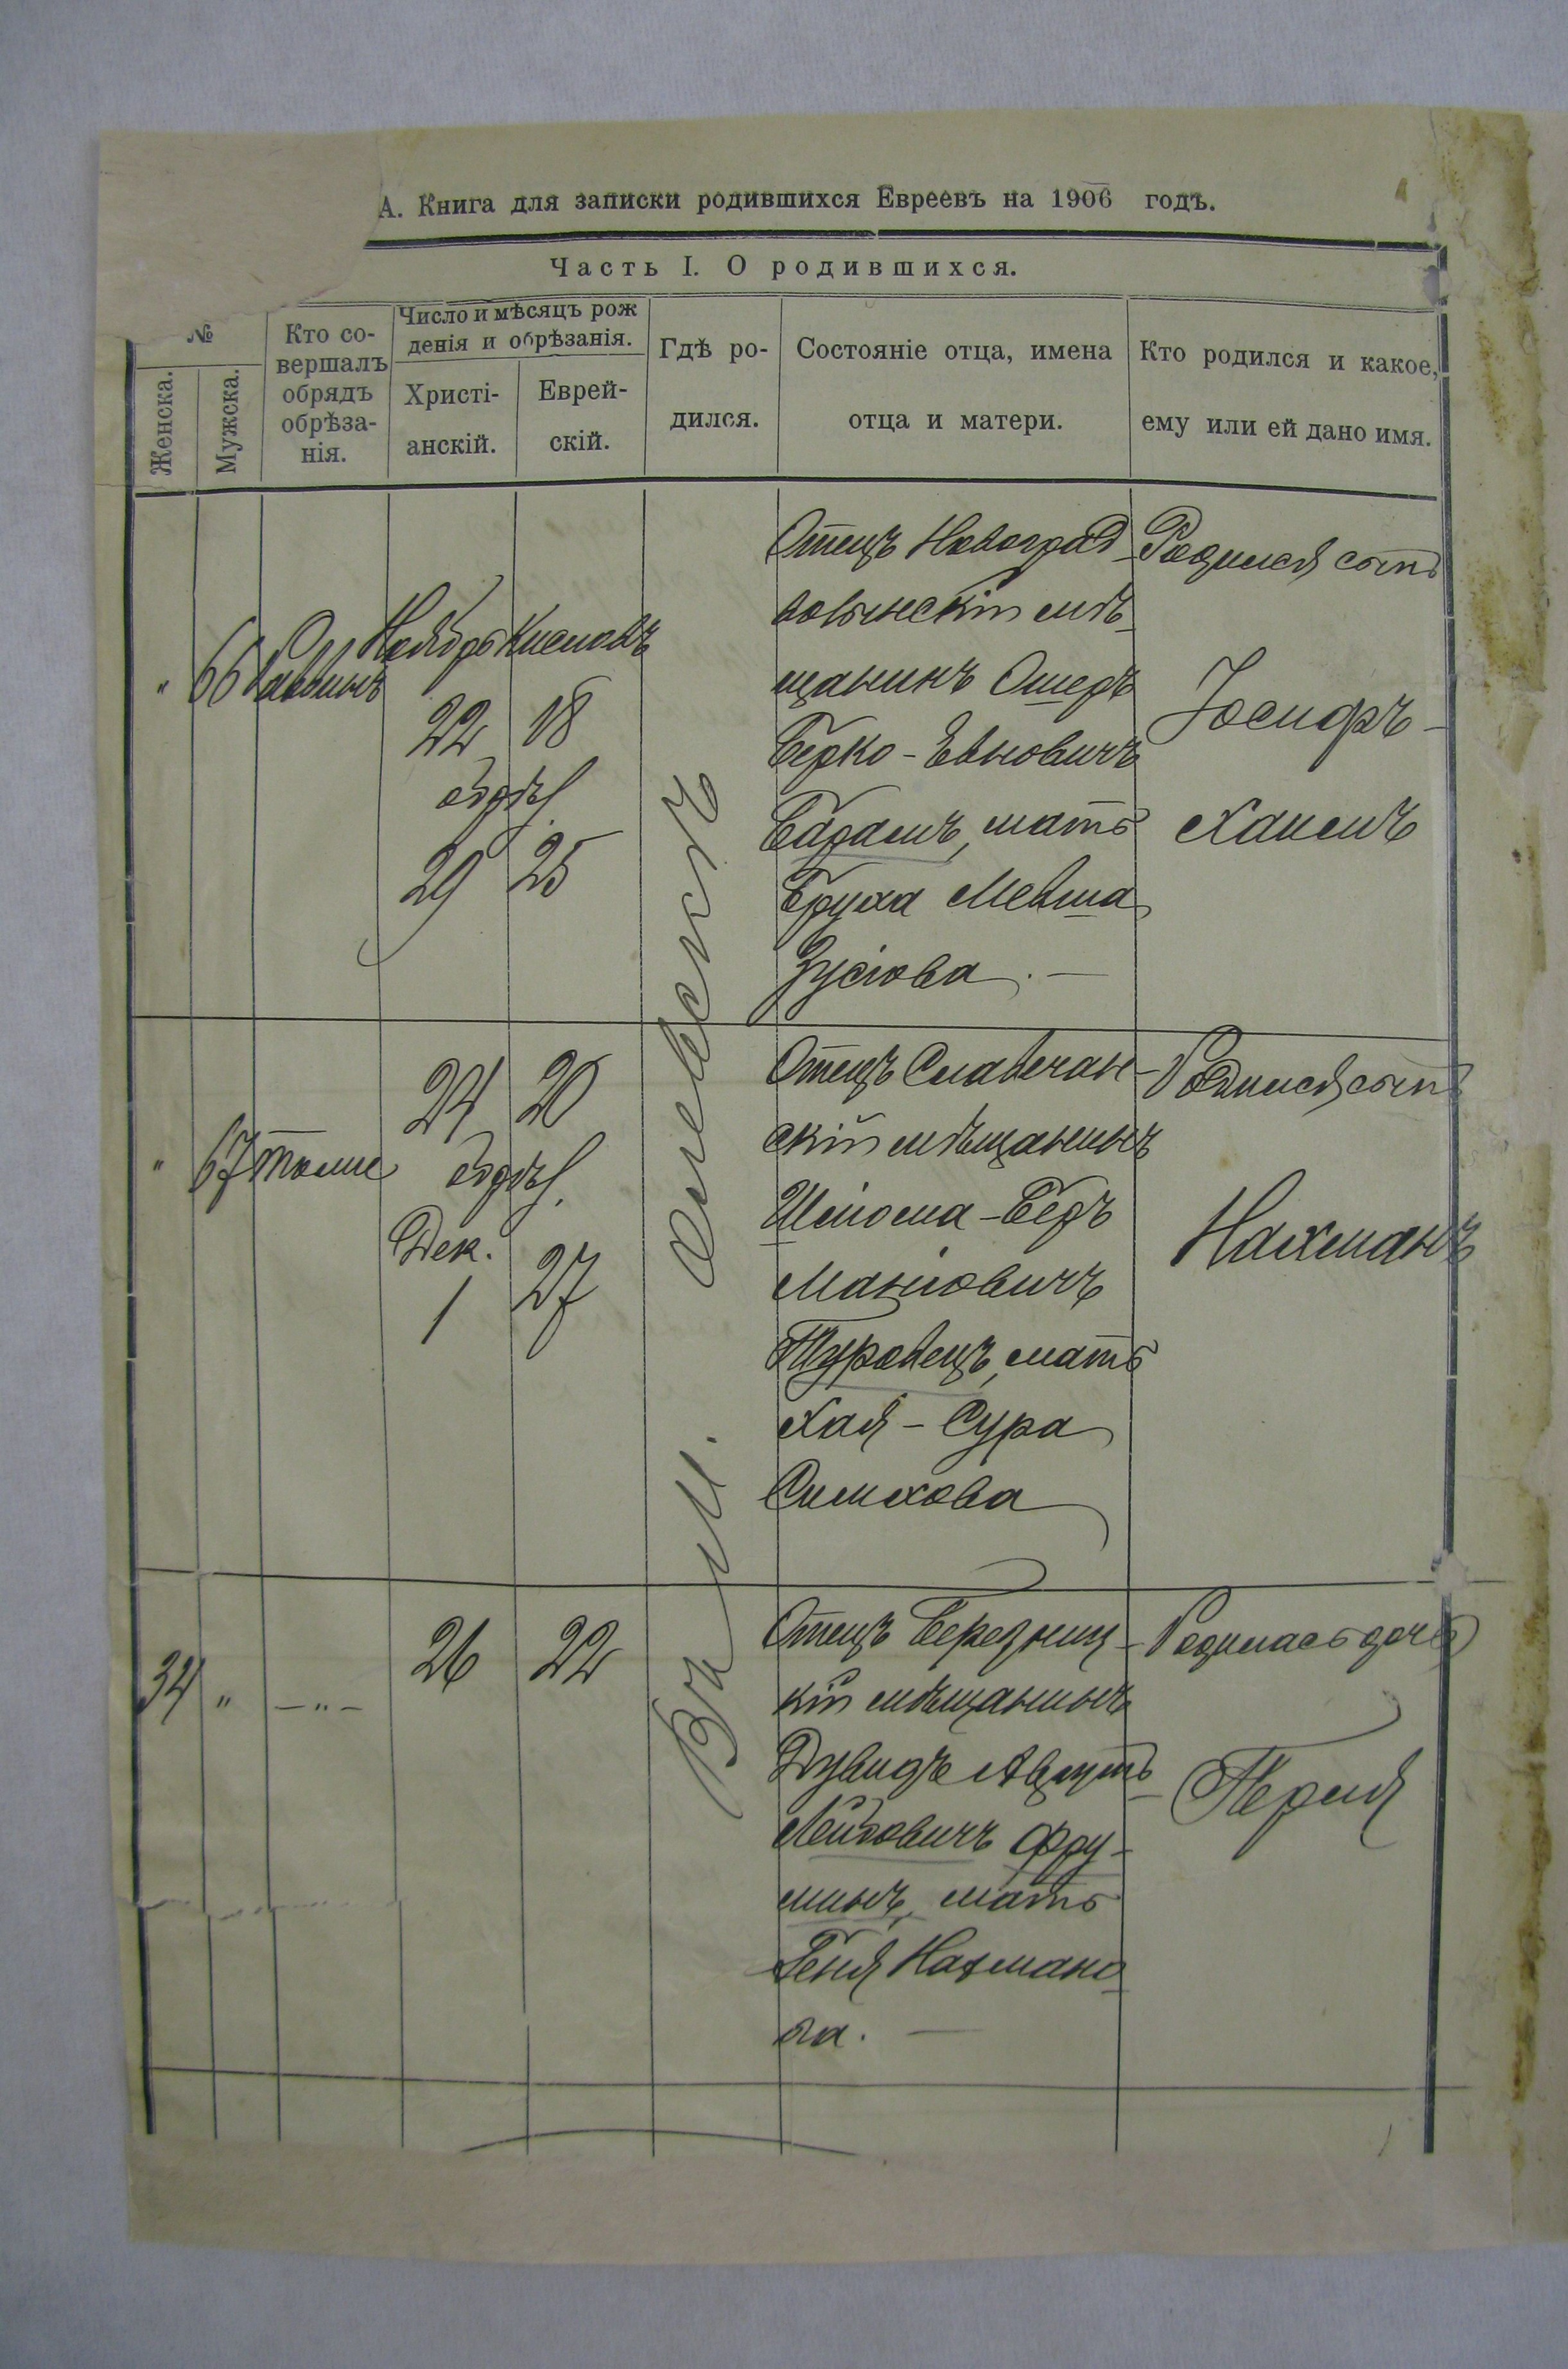 А. Книга для записки родившихся Евреевъ на 1906 годъ.
Часть I. О родившихся.
№
Женска.
Мужска.
Кто со-
вершалъ
обрядъ
обрѣза-
нія.
Число и мѣсяцъ рож
денія и обрѣзанія.
Христі-
анскій.
Еврей-
скій.
Гдѣ ро-
дился.
Состояніе отца, имена
отца и матери.
Кто родился и какое,
ему или ей дано имя.
"
66
Раввинъ
Ноябрь
22
обрѣз.
29
Кислевъ
18
25
Отецъ Новоград
волынскій мѣ-
щанинъ Ошеръ
Берко-Евновичъ
Барамъ, мать
Груха Мевша
Зусіова. —
Родился сынъ
Іосифъ-
Хаимъ
"
67
тоже
24
обрѣз.
Дек.
1
20
27
Отецъ Славечан-
скій мѣщанинъ
Шліома-Беръ
Маніовичъ
Туровецъ, мать
Хая-Сура
Симхова
Родился сынъ
Нахманъ
34
"
— " —
26
22
Отецъ Березниц-
кій мѣщанинъ
Дувидъ
Лейбовичъ Фру-
минъ, мать
Геня Нахмано
ва. —
Родилась дочь
Перля
Въ м. Олевскъ